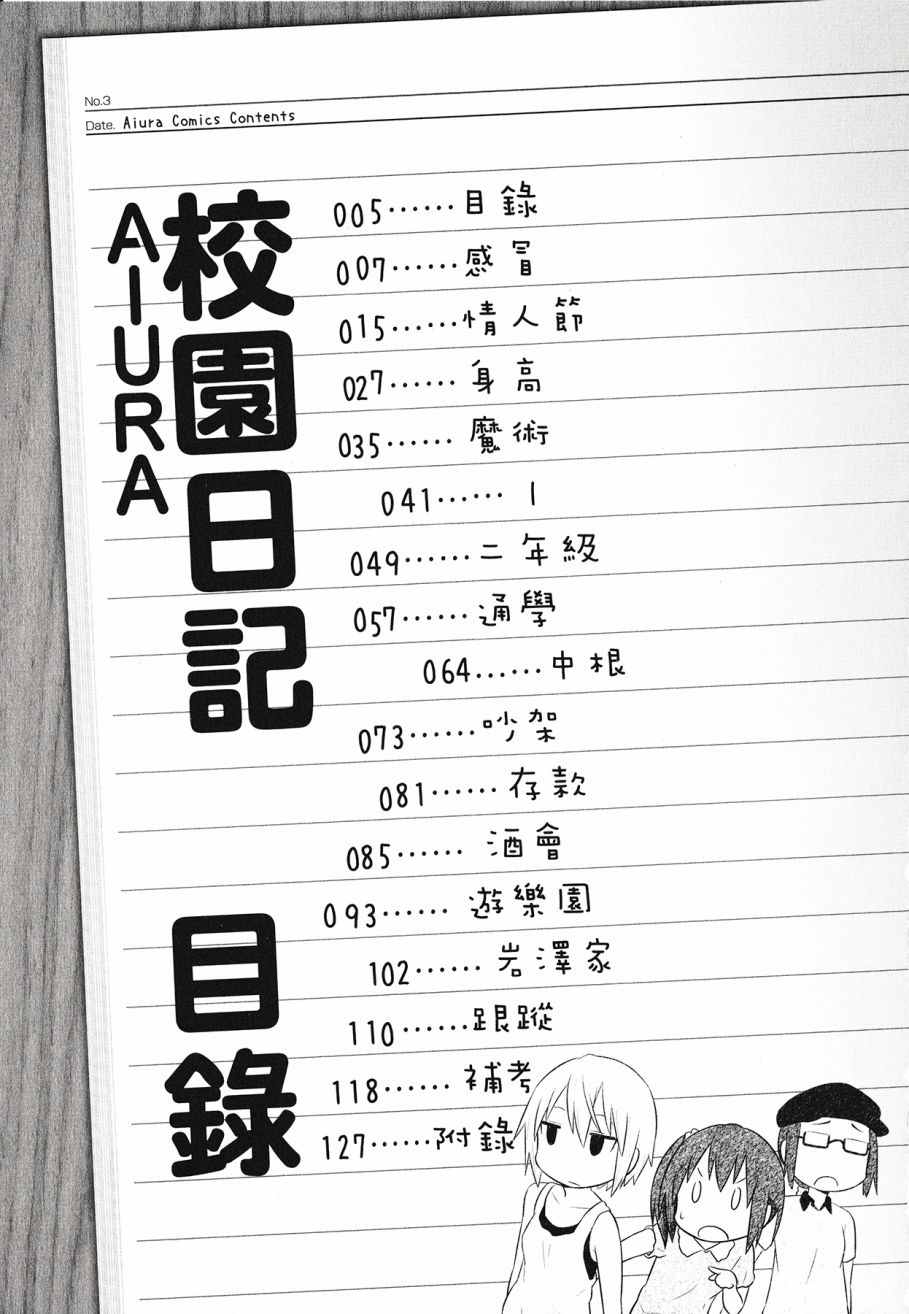 No.3
Date. Aiura Comics Contents
校園日記
AIURA
目錄
005……目錄
007……感冒
015……情人節
027……身高
035……魔術
041……1
049……二年級
057……通學
064……中根
073……吵架
081……存款
085……酒會
093……遊樂園
102……岩澤家
110……跟蹤
118……補考
127……附錄